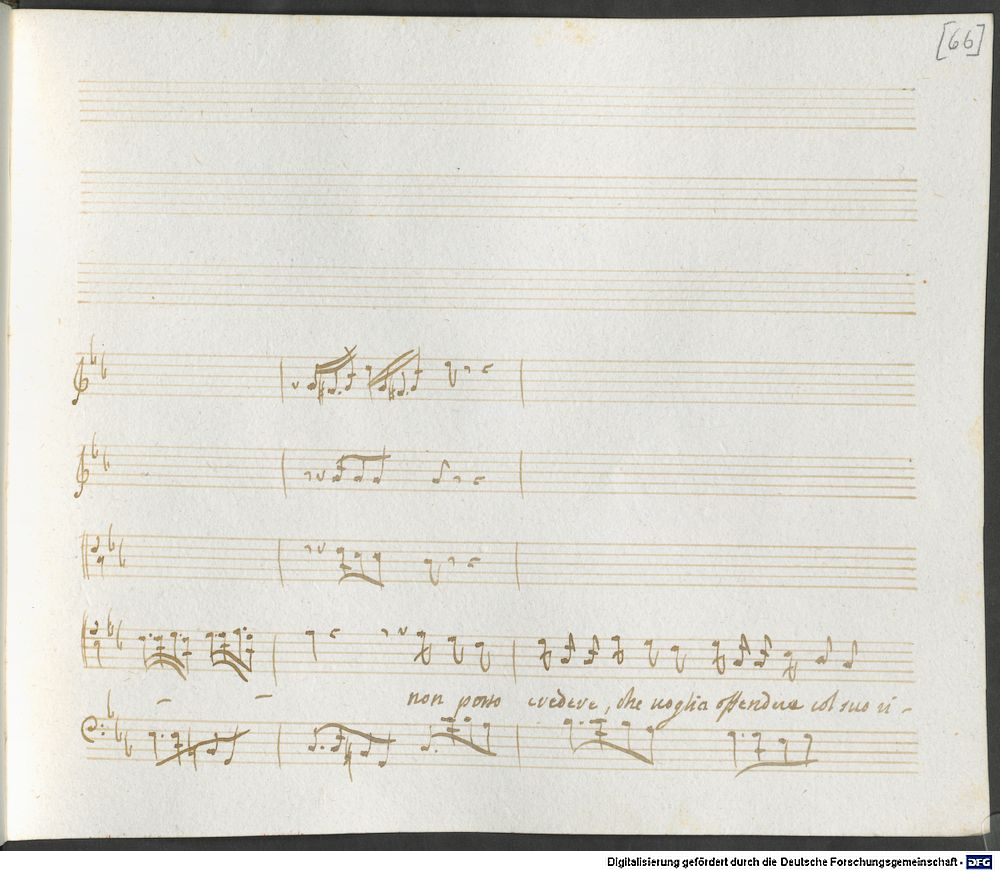 [66]
non posso credere, che voglia offendere col suo ri -
Digitalisierung gefördert durch die Deutsche Forschungsgemeinschaft - DFG